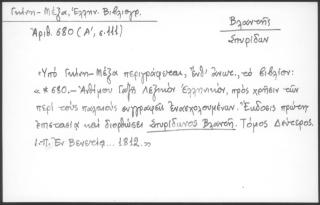 Γκίνη - Μέξα, Ἑλλην. Βιβλιογρ.
Ἀριθ. 680 (Α', σ. 111)
Βλαντῆς
Σπυρίδων
«Ὑπὸ Γκίνη - Μέξα περιγράφεται, ἔνθ' ἄνωτ., τὸ βιβλίον:
«*680.- Ἀνθίμου Γαζῆ Λεξικὸν Ἑλληνικόν, πρὸς χρῆσιν τῶν
περὶ τοὺς παλαιοὺς συγγραφεῖς ἐνασχολουμένων. Ἔκδοσις πρώτη
ἐπιστασίᾳ καὶ διορθώσει Σπυρίδωνος Βλαντῆ. Τόμος Δεύτερος.
Ἐν Βενετίᾳ... 1812.»